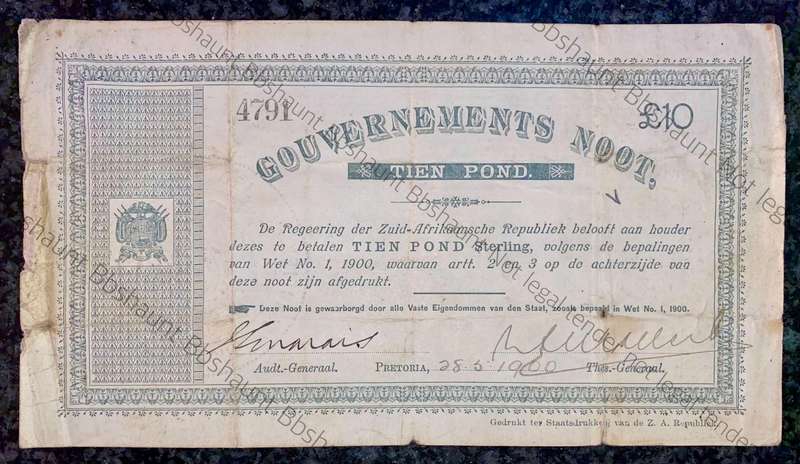 4791
£10
GOUVERNEMENTS NOOT,
TIEN POND.
De Regeering der Zuid-Afrikaansche Republiek belooft aan houder
dezes te betalen TIEN POND Sterling, volgens de bepalingen
van Wet No. 1, 1900, waarvan artt. 2 en 3 op de achterzijde van
deze noot zijn afgedrukt.
Deze Noot is gewaarborgd door alle Vaste Eigendommen van den Staat, zooals bepaald in Wet No. 1, 1900.
Audt.-Generaal. PRETORIA, 28.5.1900 Thes.-Generaal.
Gedrukt ter Staatsdrukkerij van de Z. A. Republiek.
Bbshaunt Bbshaunt Bbshaunt Not legal tender